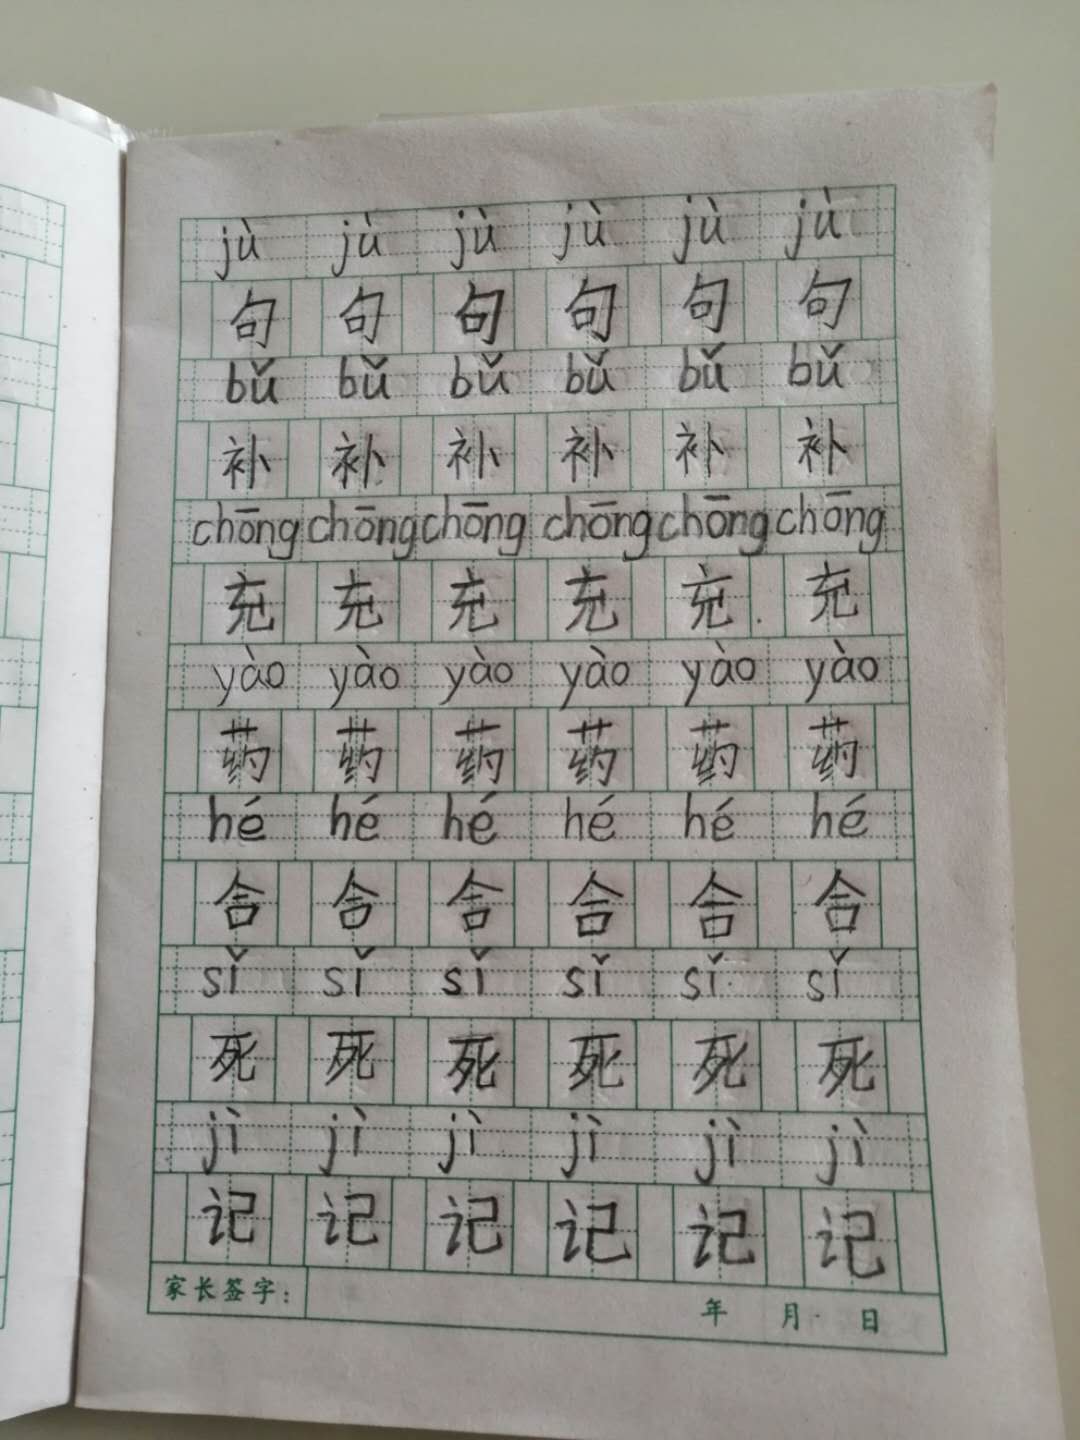 jù jù jù jù jù jù
句 句 句 句 句 句
bǔ bǔ bǔ bǔ bǔ bǔ
补 补 补 补 补 补
chōng chōng chōng chōng chōng chōng
充 充 充 充 充 充
yào yào yào yào yào yào
药 药 药 药 药 药
hé hé hé hé hé hé
合 合 合 合 合 合
sǐ sǐ sǐ sǐ sǐ sǐ
死 死 死 死 死 死
jì jì jì jì jì jì
记 记 记 记 记 记
家长签字： 年 月 日